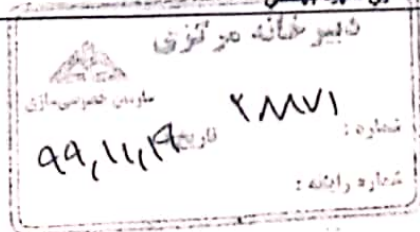 دبیرخانه مرکزی
سازمان خصوصی‌سازی
شماره : ۲۸۸۷۱ تاریخ ۹۹,۱۱,۱۹
شماره رایانه :